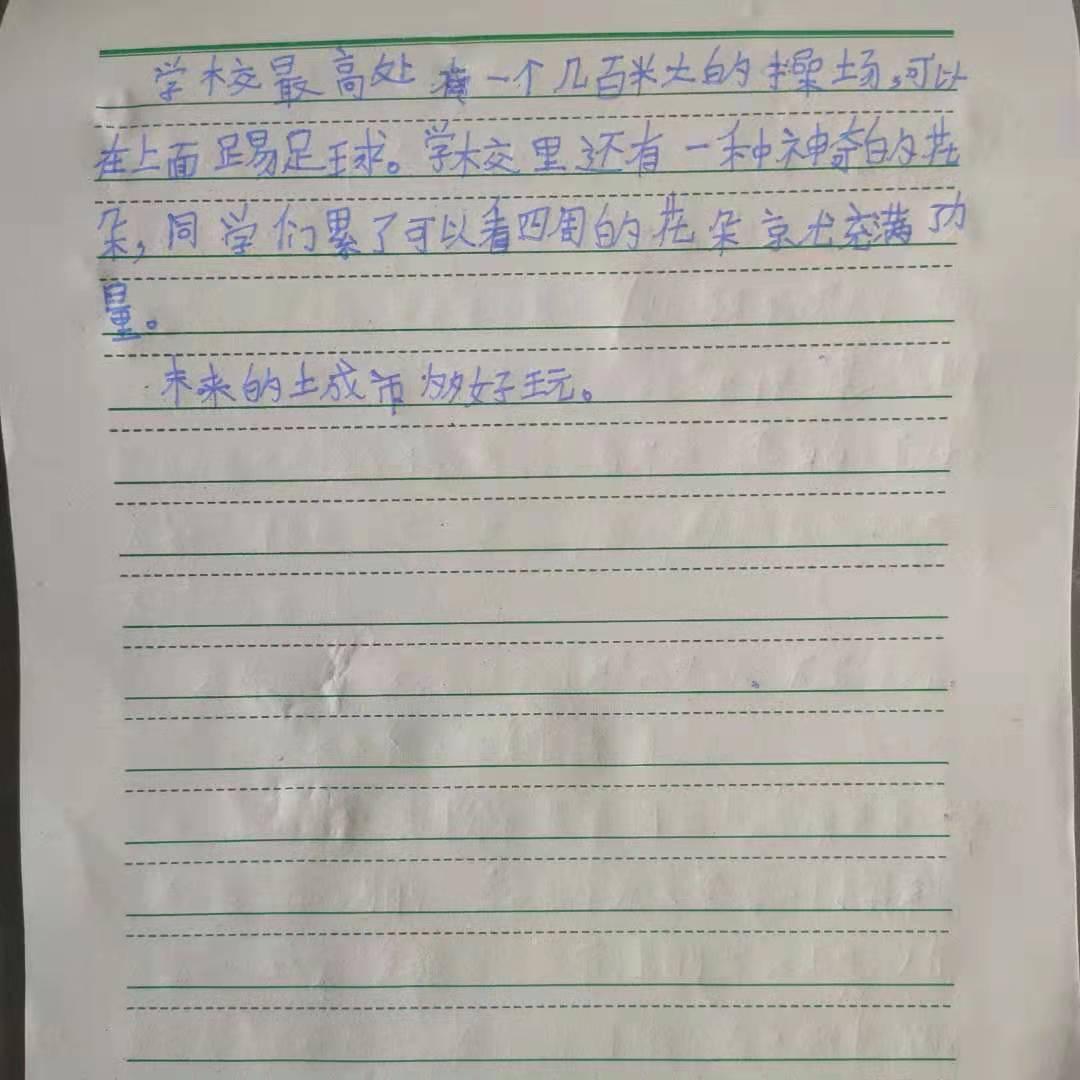 学校最高处有一个几百米大的操场，可以
在上面踢足球。学校里还有一种神奇的花
朵，同学们累了可以看四周的花朵京尤充满了力
量。
未来的城市多好玩。